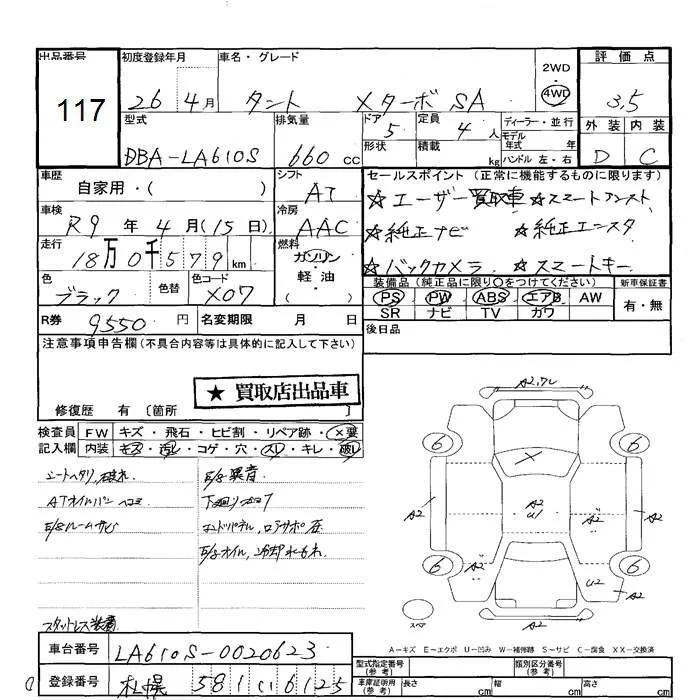 出品番号 117
初度登録年月 26年 4月
車名・グレード タント XターボSA
2WD
4WD
評価点 3.5
外装 内装
D C
型式 DBA-LA610S
排気量 660 cc
ドア 5
形状
定員 4 人
積載 kg
ディーラー・並行
モデル年式 年式
ハンドル 左・右
車歴 自家用・( )
シフト AT
車検 R9年 4月(15日)
冷房 AAC
走行 18万0千579km
燃料 ガソリン
軽油
( )
色 ブラック
色替
色コード X07
R券 9550円
名変期限 月 日
セールスポイント (正常に機能するものに限ります)
☆ユーザー買取車 ☆スマートアシスト
☆純正ナビ ☆純正エンスタ
☆バックカメラ ☆スマートキー
装備品 (純正品に限り○をつけてください)
PS PW ABS エアB AW
SR ナビ TV カワ
新車保証書
有・無
後日品
注意事項申告欄 (不具合内容等は具体的に記入して下さい)
★ 買取店出品車
修復歴 有 〔箇所 〕
検査員記入欄
FW キズ・飛石・ヒビ割・リペア跡・X要
内装 キズ・汚レ・コゲ・穴・スレ・キレ・破レ
シートヘタリ
ATオイルパン ヘコミ
E/gルームサビ
スタットレス装着
E/g異音
下廻り
E/gオイル、冷却水もれ
A2
6 6
X
A2 A2 U1 A2 A2
A2 A2
6 6
A2 U2
A2
スペア
A=キズ E=エクボ U=凹み W=補修跡 S=サビ C=腐食 XX=交換済
車台番号 LA610S-0020623
登録番号 札幌 581 い 6125
型式指定番号 (参考)
類別区分番号 (参考)
車庫証明用 (参考) 長さ cm 幅 cm 高さ cm